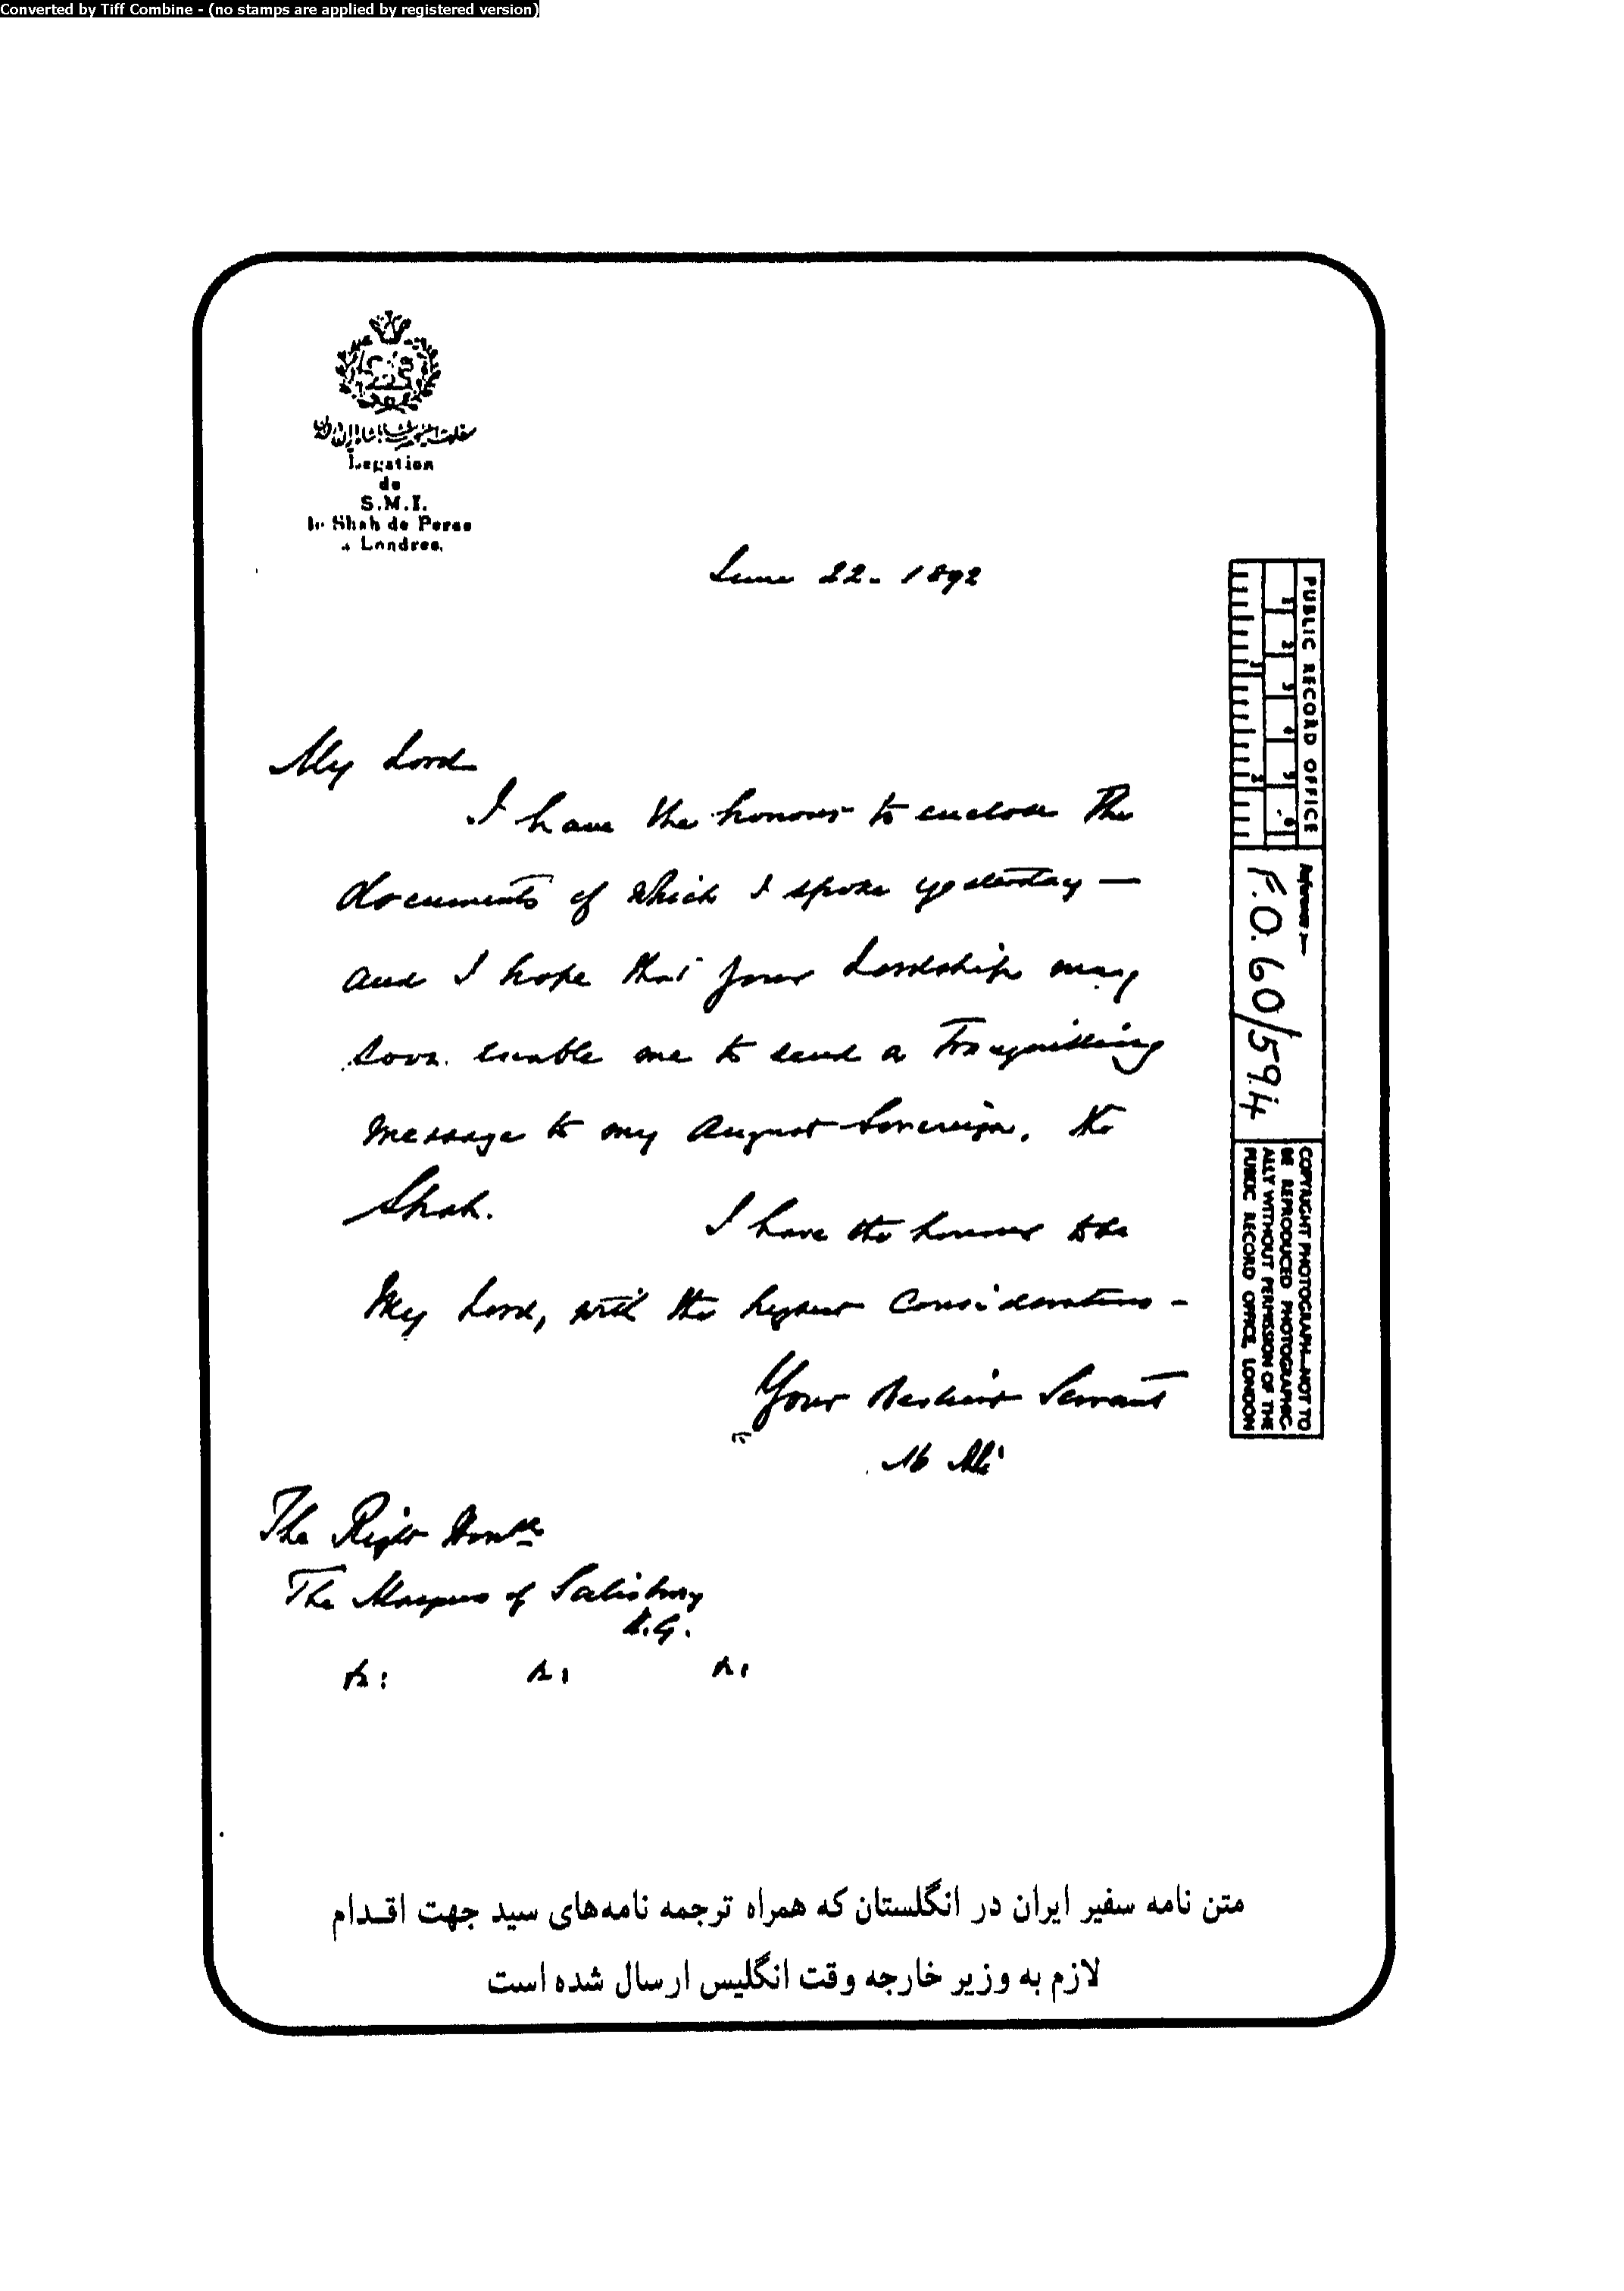 Converted by Tiff Combine - (no stamps are applied by registered version)
Legation
de
S.M.I.
le Shah de Perse
a Londres.
June 22 - 1892
My Lord
I have the honour to enclose the
documents of which I spoke yesterday —
and I hope that your Lordship may
soon enable me to send a Tranquilling
message to my August Sovereign, the
Shah.
I have the honour to be
My Lord, with the highest Considerations -
Your obedient Servant
M Ali
The Right Honble
The Marquis of Salisbury
K.G.
PUBLIC RECORD OFFICE
1 2 3 4 5 6
Reference :—
F.O. 60/594
COPYRIGHT PHOTOGRAPH—NOT TO
BE REPRODUCED PHOTOGRAPHIC-
ALLY WITHOUT PERMISSION OF THE
PUBLIC RECORD OFFICE, LONDON
متن نامه سفیر ایران در انگلستان که همراه ترجمه نامه‌های سید جهت اقـدام
لازم به وزیر خارجه وقت انگلیس ارسال شده است